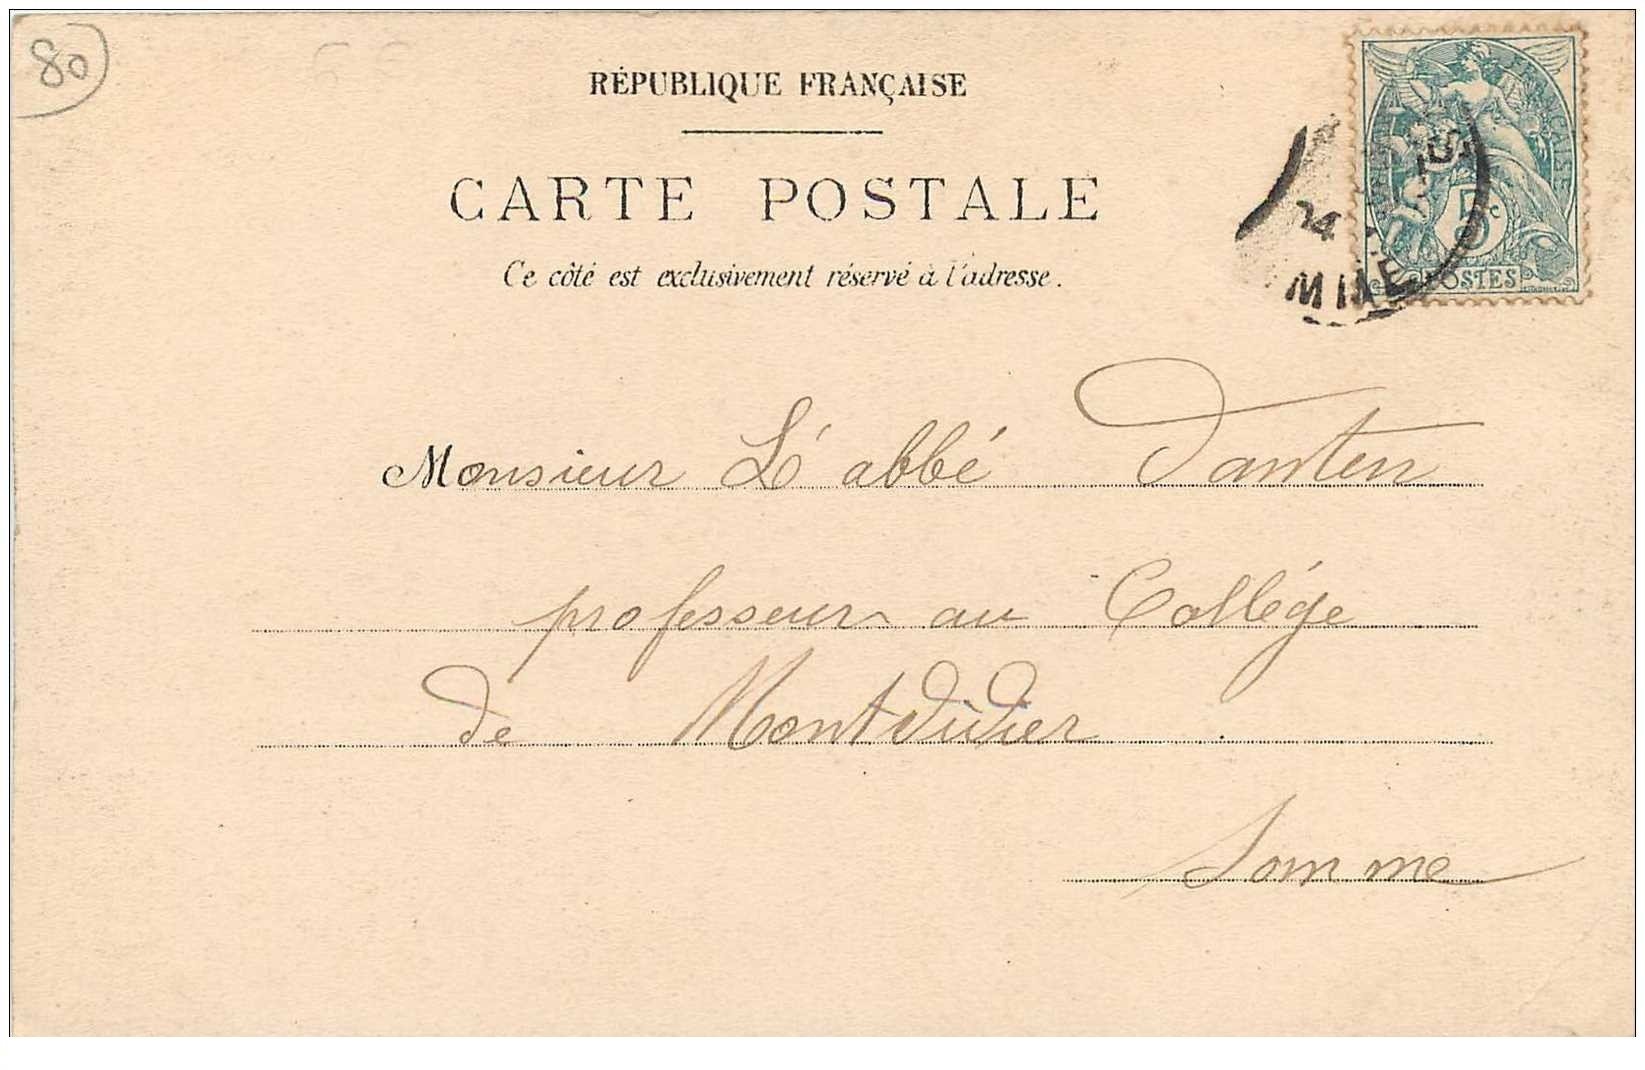 80
RÉPUBLIQUE FRANÇAISE
CARTE POSTALE
Ce côté est exclusivement réservé à l'adresse.
FRANÇAISE
5c
POSTES
24
Monsieur L'abbé Danten
professeur au Collége
de Montdidier
Somme